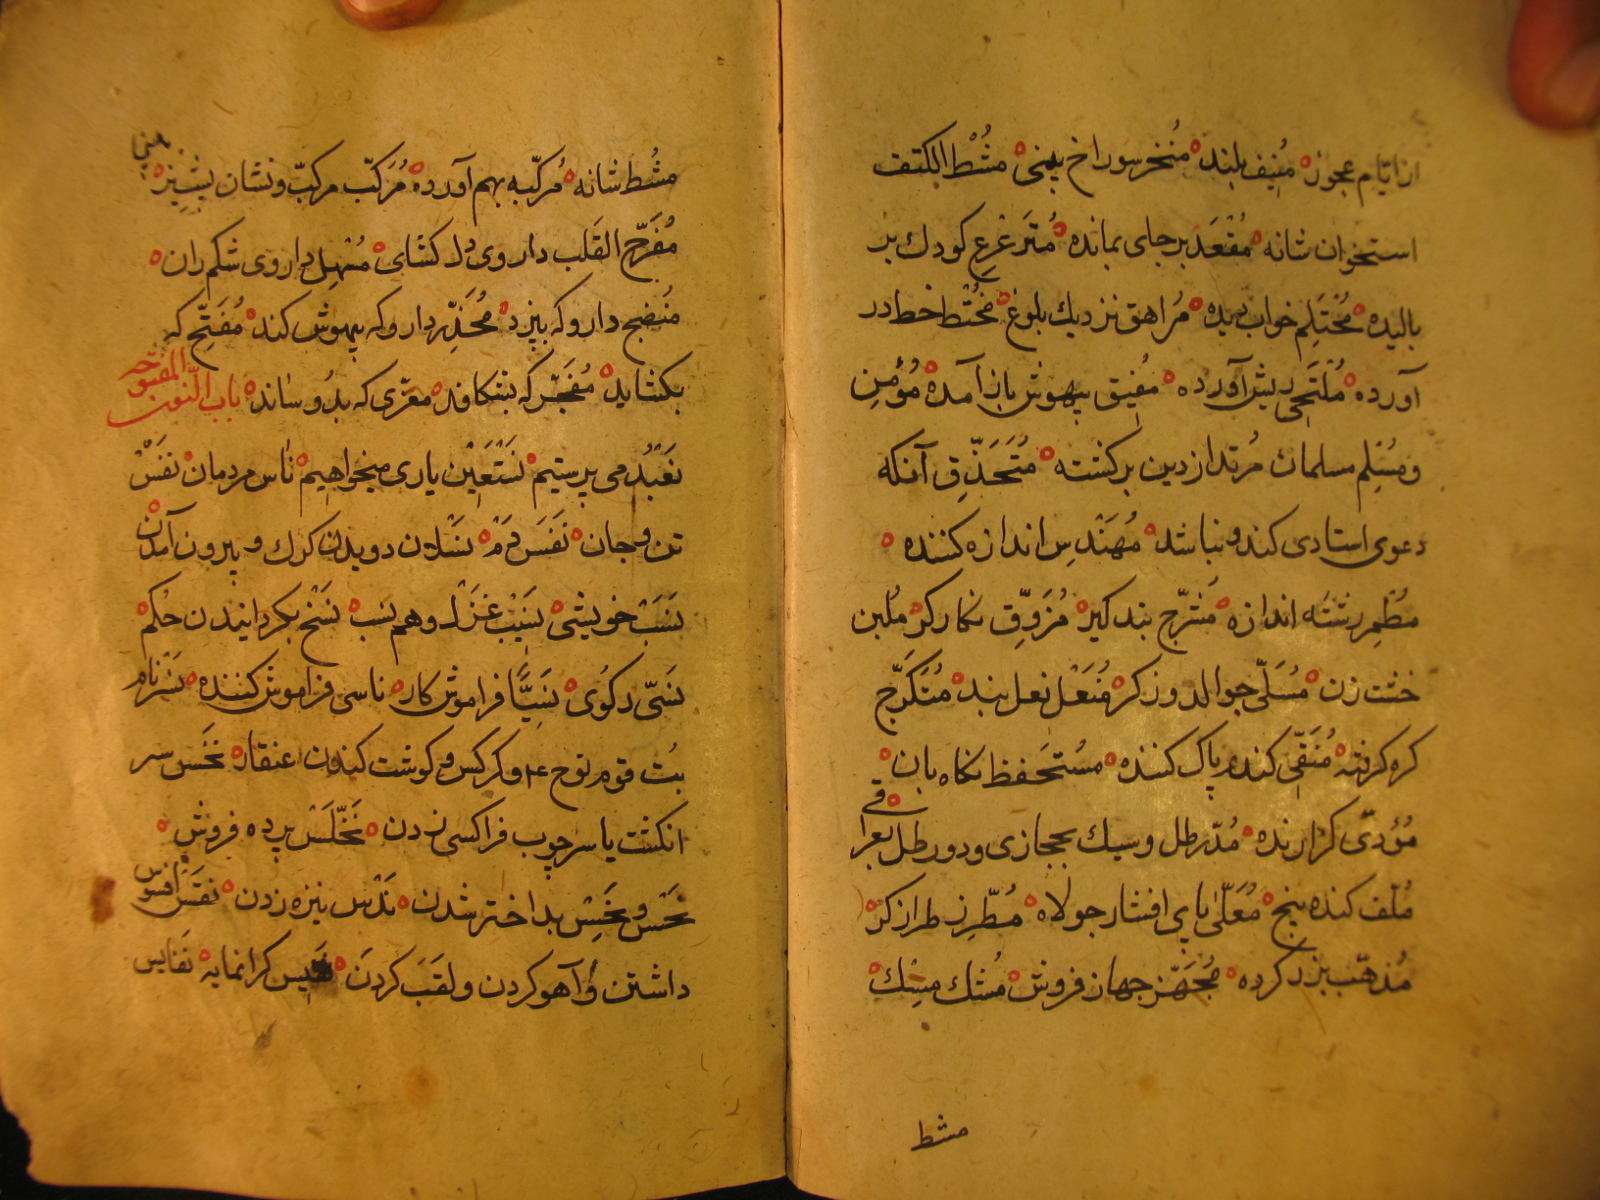 از ایّام عجوز مُنِیف بلند مُنخر سوراخ بینی مُشْط الکتف
استخوان شانه مُقْعَد بر جای بمانده مُتَرَعْرِع کودك بر
بالیده مُحْتَلِم خواب دیده مُراهق نزدیك بلوغ مُخْتَط خط در
آورده مُلْتَحِی ریش آورده مُفِیق بیهوش باز آمده مُؤْمِن
و مُسْلِم مسلمان مُرتد از دین برکشته مُتَحَذِّق آنکه
دعوی استادی کند و نباشد مُهَنْدِس اندازه کننده
مِطْمِر رشته اندازه مُشَرِّج بند کیر مُزَوِّق نکارکر مُلبن
خشت زن مُسَلّی جوالدوزکر مُنَعْل نعل بند مُتَکَرِّج
کره کرفته مُنَقّی کنده پاک کننده مُستَحفِظ نکاه بان
مُؤدّی کزارنده مُدّ رطل و سیك بحجازی و دو رطل بعراقی
کنده بیخ مُعَلّی پای افشار جولاه مُطَرِّز طرازکر
مُذهّب بزر کرده مُجَهِّز جهاز فروش مُسْك مِسْك
مشط
مُشْط شانه مُرَکّبه بهم آورده مُرَکّب مرکبّ و نشان بشیز
مُفَرِّح القَلب داروی دل کشای مُسْهِل داروی شکم ران
مُنضِج دارو که بپزد مُخَدِّر دارو که بیهوش کند مُفَتِّح که
بکشاید مُفَجِّر که بشکافد مغرّی که بدُوساند باب النّون المفتوحه
نَعْبُدُ می پرستیم نَسْتَعِیْن یاری میخواهیم ناس مردمان نَفْسْ
تن و جان نَفَس دَمْ نَسَلان دویدن کرك و بیرون آمدن
نَسَبْ خویشی نَسِیْب غَزَل و هم نسب نَسْخ بکردانیدن حُکم
نَسِیّ نَسِیًّا فراموش کار ناسی فراموش کننده نَسْر نام
بُت قوم نوح ع م و کرکس و کوشت کندن منقار نَخْس سر
انکشت یا سر چوب فرا کسی زدن نَخّاس برده فروش
نَحْس و نَحِس بداختر شدن نَدْس نیزه زدن نَقْسَ افسوس
داشتن و آهو کردن و لقَب کردن نَفِیس کرانمایه نفایس